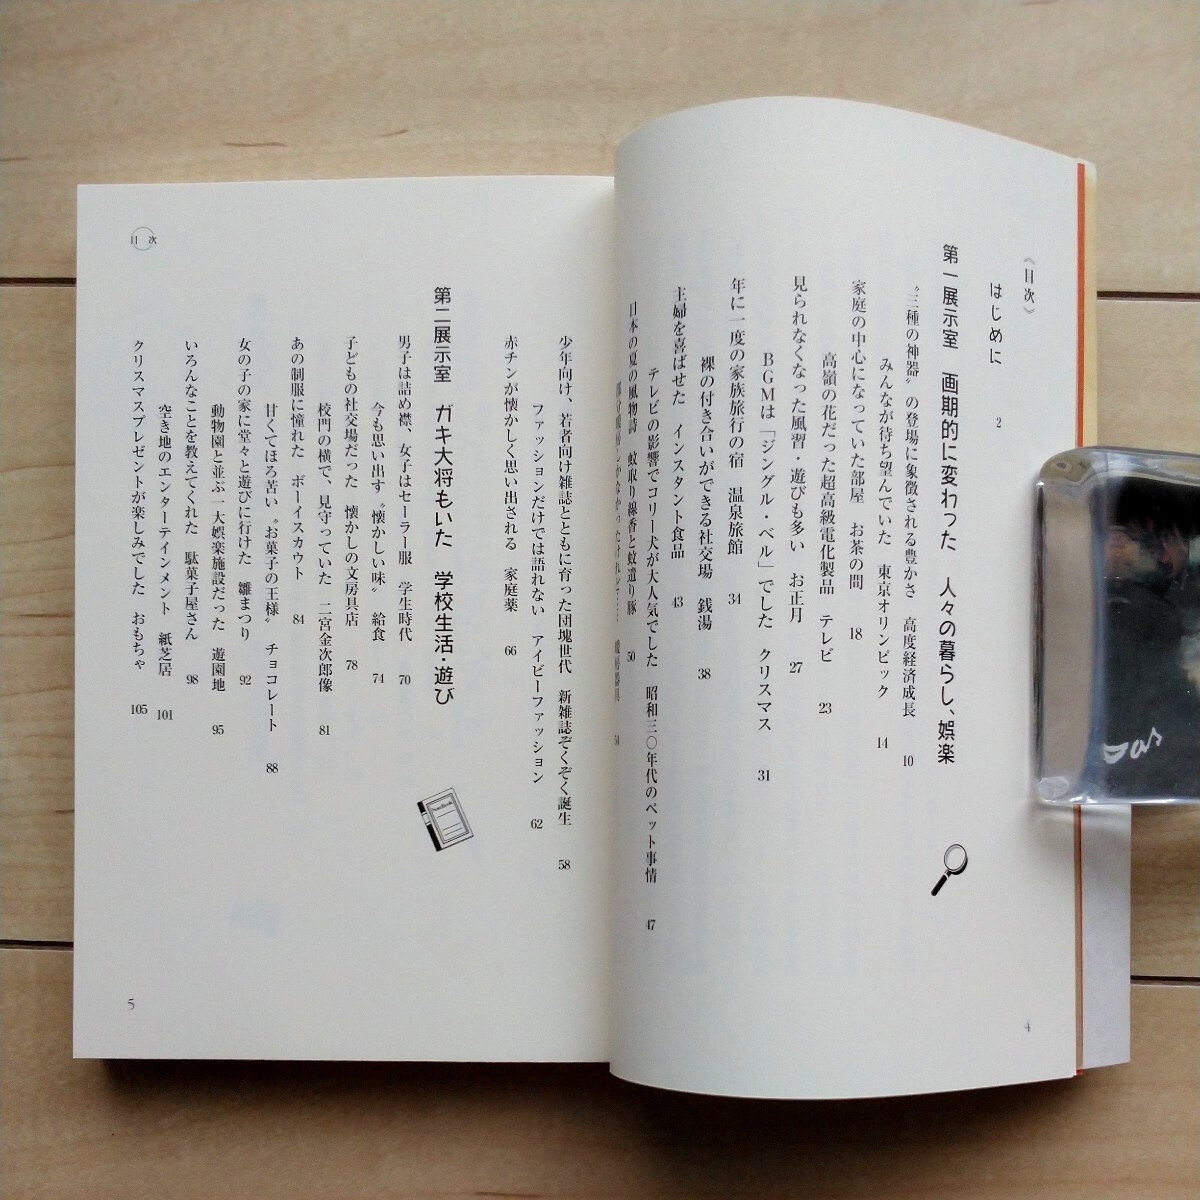 《目次》
はじめに 2
第一展示室 画期的に変わった 人々の暮らし、娯楽
〝三種の神器〟の登場に象徴される豊かさ 高度経済成長 10
みんなが待ち望んでいた 東京オリンピック 14
家庭の中心になっていた部屋 お茶の間 18
高嶺の花だった超高級電化製品 テレビ 23
見られなくなった風習・遊びも多い お正月 27
BGMは「ジングル・ベル」でした クリスマス 31
年に一度の家族旅行の宿 温泉旅館 34
裸の付き合いができる社交場 銭湯 38
主婦を喜ばせた インスタント食品 43
テレビの影響でコリー犬が大人気でした 昭和三〇年代のペット事情 47
日本の夏の風物詩 蚊取り線香と蚊遣り豚 50
54
4
少年向け、若者向け雑誌とともに育った団塊世代 新雑誌ぞくぞく誕生 58
ファッションだけでは語れない アイビーファッション 62
赤チンが懐かしく思い出される 家庭薬 66
第二展示室 ガキ大将もいた 学校生活・遊び
NoteBook
男子は詰め襟、女子はセーラー服 学生時代 70
今も思い出す〝懐かしい味〟 給食 74
子どもの社交場だった 懐かしの文房具店 78
校門の横で、見守っていた 二宮金次郎像 81
あの制服に憧れた ボーイスカウト 84
甘くてほろ苦い〝お菓子の王様〟 チョコレート 88
女の子の家に堂々と遊びに行けた 雛まつり 92
動物園と並ぶ一大娯楽施設だった 遊園地 95
いろんなことを教えてくれた 駄菓子屋さん 98
空き地のエンターテインメント 紙芝居 101
クリスマスプレゼントが楽しみでした おもちゃ 105
目次
5